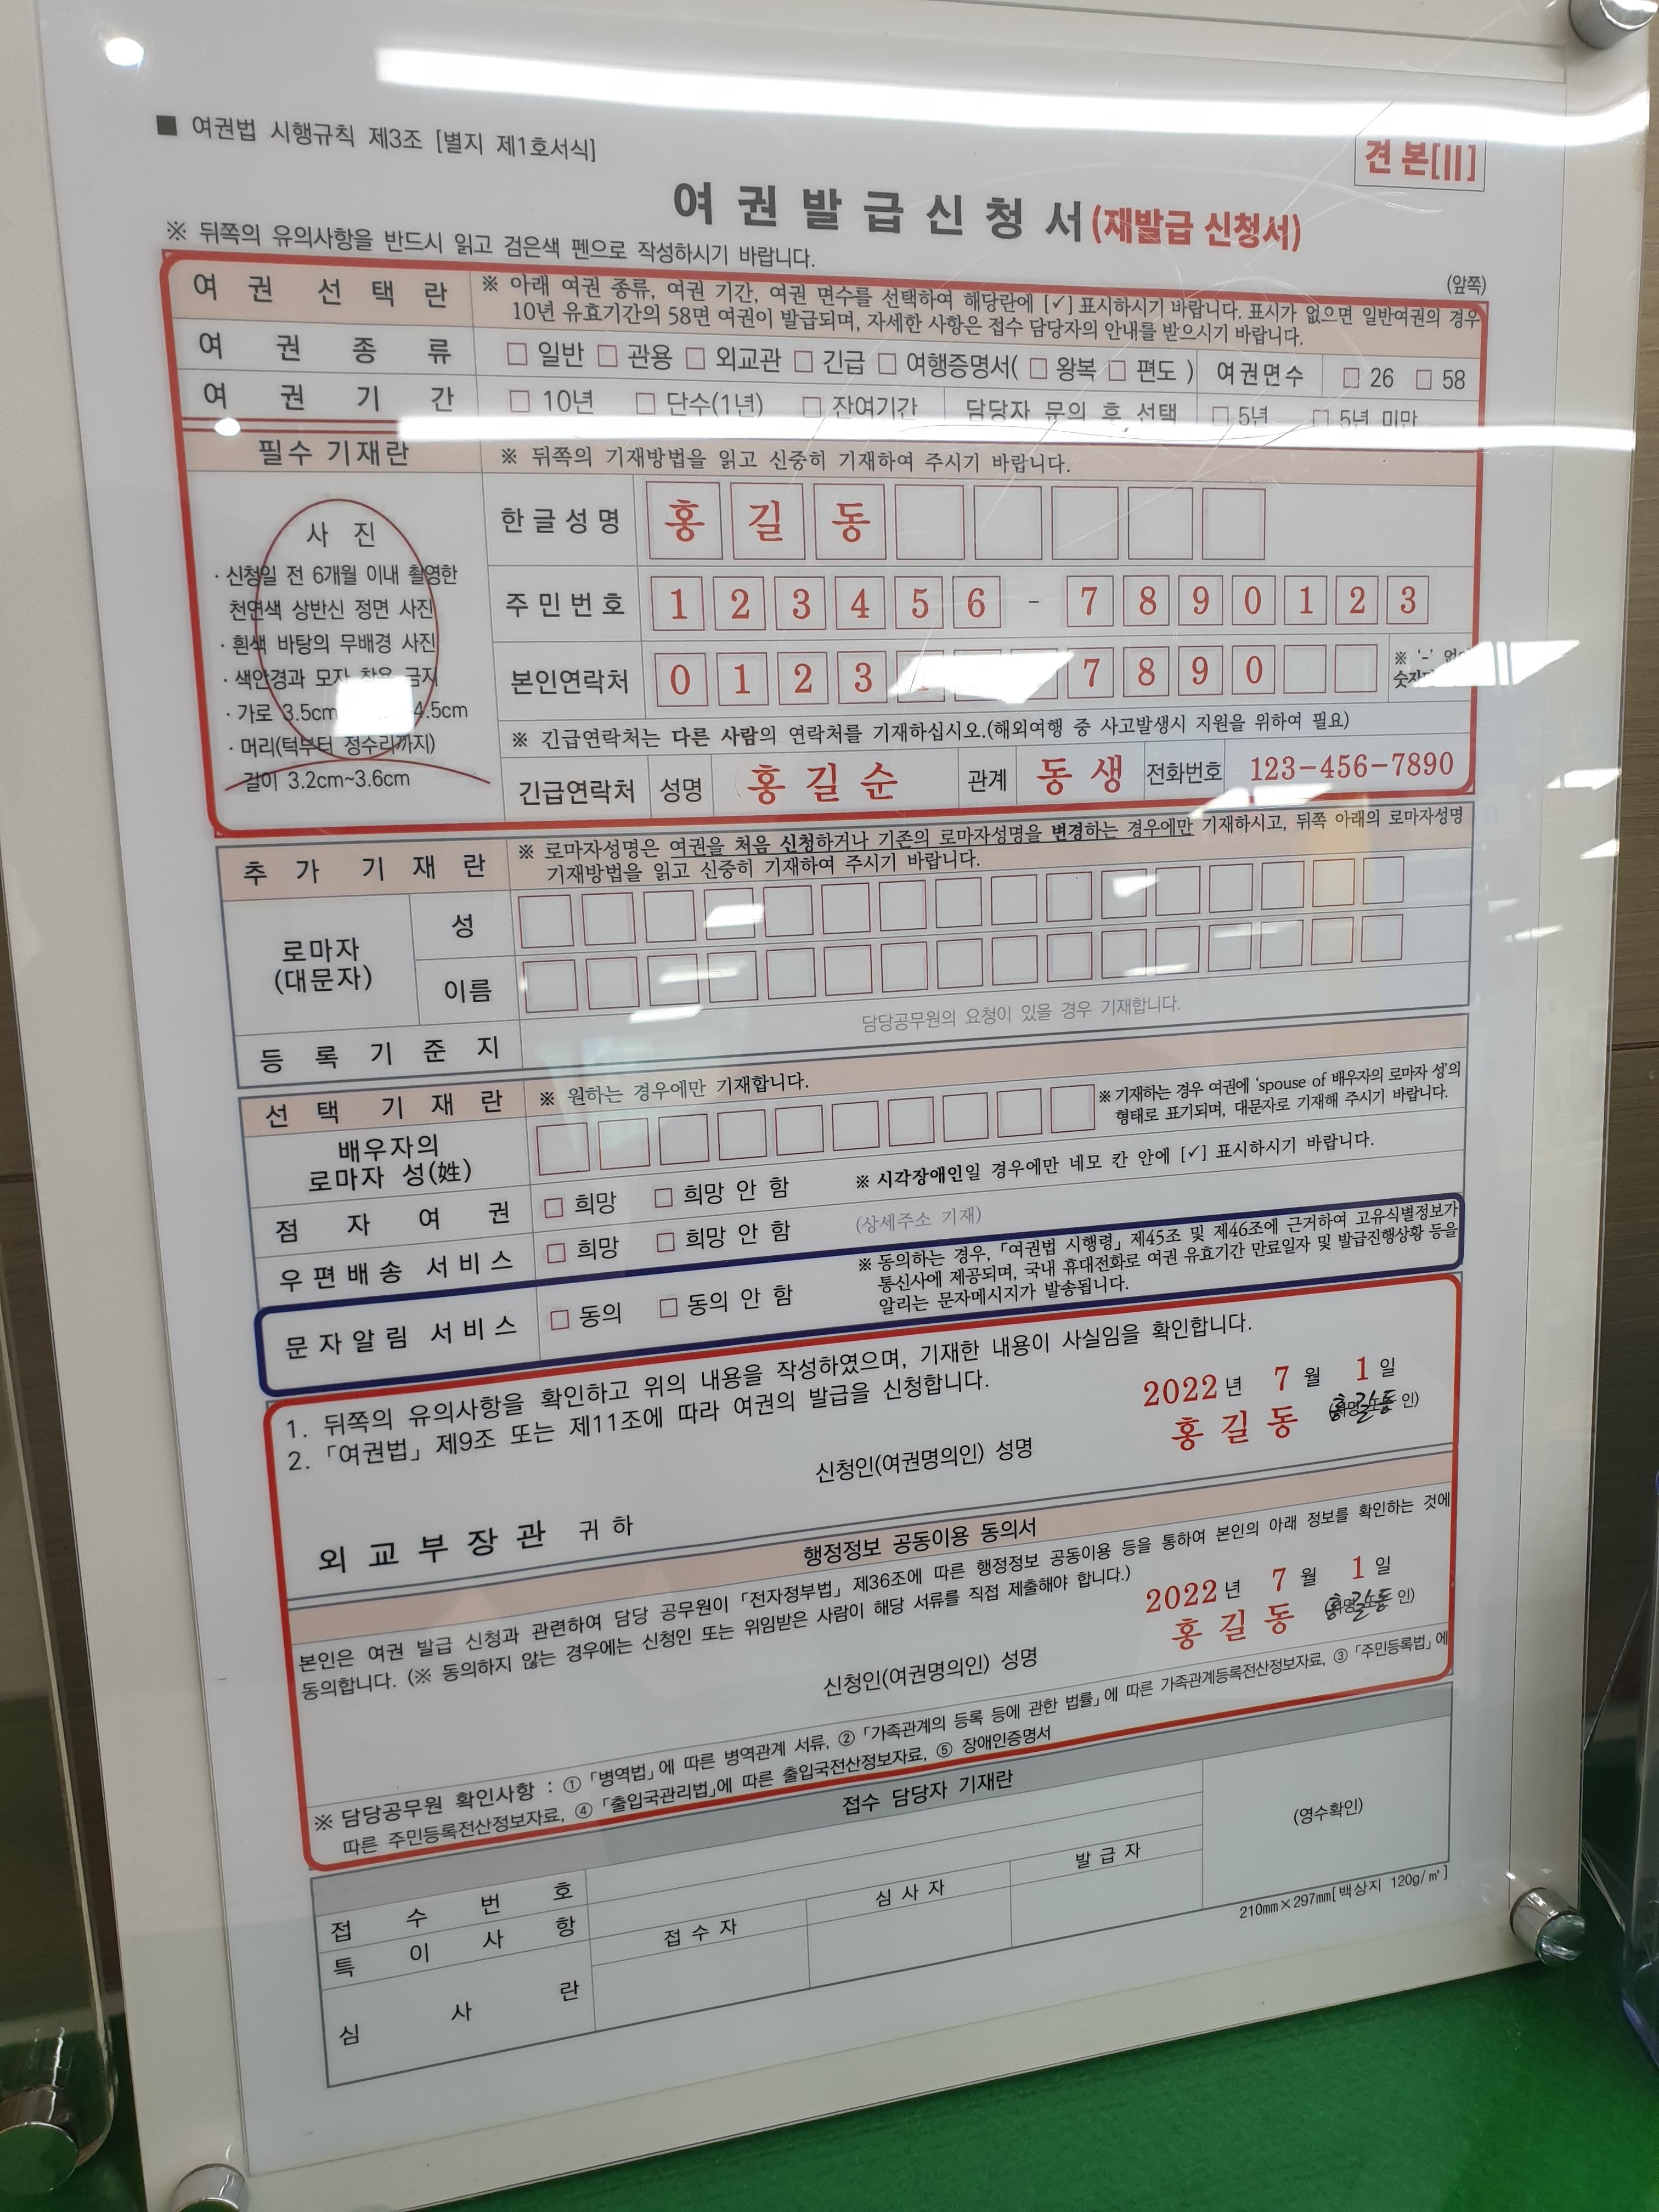 ■ 여권법 시행규칙 제3조 [별지 제1호서식]
견 본[II]
여 권 발 급 신 청 서(재발급 신청서)
※ 뒤쪽의 유의사항을 반드시 읽고 검은색 펜으로 작성하시기 바랍니다.
(앞쪽)
여 권 선 택 란
※ 아래 여권 종류, 여권 기간, 여권 면수를 선택하여 해당란에 [✓] 표시하시기 바랍니다. 표시가 없으면 일반여권의 경우
10년 유효기간의 58면 여권이 발급되며, 자세한 사항은 접수 담당자의 안내를 받으시기 바랍니다.
여 권 종 류 □ 일반 □ 관용 □ 외교관 □ 긴급 □ 여행증명서( □ 왕복 □ 편도 ) 여권면수 □ 26 □ 58
여 권 기 간 □ 10년 □ 단수(1년) □ 잔여기간 담당자 문의 후 선택 □ 5년 □ 5년 미만
필수 기재란 ※ 뒤쪽의 기재방법을 읽고 신중히 기재하여 주시기 바랍니다.
사 진
· 신청일 전 6개월 이내 촬영한
천연색 상반신 정면 사진
· 흰색 바탕의 무배경 사진
· 색안경과 모자 착용 금지
· 가로 3.5cm 4.5cm
· 머리(턱부터 정수리까지)
길이 3.2cm~3.6cm
한글성명 홍 길 동
주민번호 1 2 3 4 5 6 - 7 8 9 0 1 2 3
본인연락처 0 1 2 3 7 8 9 0
※ '-' 없이
※ 긴급연락처는 다른 사람의 연락처를 기재하십시오.(해외여행 중 사고발생시 지원을 위하여 필요)
긴급연락처 성명 홍 길 순 관계 동 생 전화번호 123-456-7890
추 가 기 재 란
※ 로마자성명은 여권을 처음 신청하거나 기존의 로마자성명을 변경하는 경우에만 기재하시고, 뒤쪽 아래의 로마자성명
기재방법을 읽고 신중히 기재하여 주시기 바랍니다.
로마자
(대문자)
성
이름
등 록 기 준 지
담당공무원의 요청이 있을 경우 기재합니다.
선 택 기 재 란 ※ 원하는 경우에만 기재합니다.
배우자의
로마자 성(姓)
※ 기재하는 경우 여권에 'spouse of 배우자의 로마자 성'의
형태로 표기되며, 대문자로 기재해 주시기 바랍니다.
점 자 여 권 □ 희망 □ 희망 안 함 ※ 시각장애인일 경우에만 네모 칸 안에 [✓] 표시하시기 바랍니다.
우편배송 서비스 □ 희망 □ 희망 안 함 (상세주소 기재)
문자알림 서비스 □ 동의 □ 동의 안 함
※ 동의하는 경우, 「여권법 시행령」 제45조 및 제46조에 근거하여 고유식별정보가
통신사에 제공되며, 국내 휴대전화로 여권 유효기간 만료일자 및 발급진행상황 등을
알리는 문자메시지가 발송됩니다.
1. 뒤쪽의 유의사항을 확인하고 위의 내용을 작성하였으며, 기재한 내용이 사실임을 확인합니다.
2. 「여권법」 제9조 또는 제11조에 따라 여권의 발급을 신청합니다.
2022 년 7 월 1 일
신청인(여권명의인) 성명 홍 길 동 홍길동 인)
외 교 부 장 관 귀 하
행정정보 공동이용 동의서
본인은 여권 발급 신청과 관련하여 담당 공무원이 「전자정부법」 제36조에 따른 행정정보 공동이용 등을 통하여 본인의 아래 정보를 확인하는 것에
동의합니다. (※ 동의하지 않는 경우에는 신청인 또는 위임받은 사람이 해당 서류를 직접 제출해야 합니다.)
2022 년 7 월 1 일
신청인(여권명의인) 성명 홍 길 동 홍길동 인)
※ 담당공무원 확인사항 : ① 「병역법」에 따른 병역관계 서류, ② 「가족관계의 등록 등에 관한 법률」에 따른 가족관계등록전산정보자료, ③ 「주민등록법」에
따른 주민등록전산정보자료, ④ 「출입국관리법」에 따른 출입국전산정보자료, ⑤ 장애인증명서
접수 담당자 기재란
접 수 번 호
특 이 사 항
심 사 란
접 수 자
심 사 자
발 급 자
(영수확인)
210㎜×297㎜[백상지 120g/㎡]